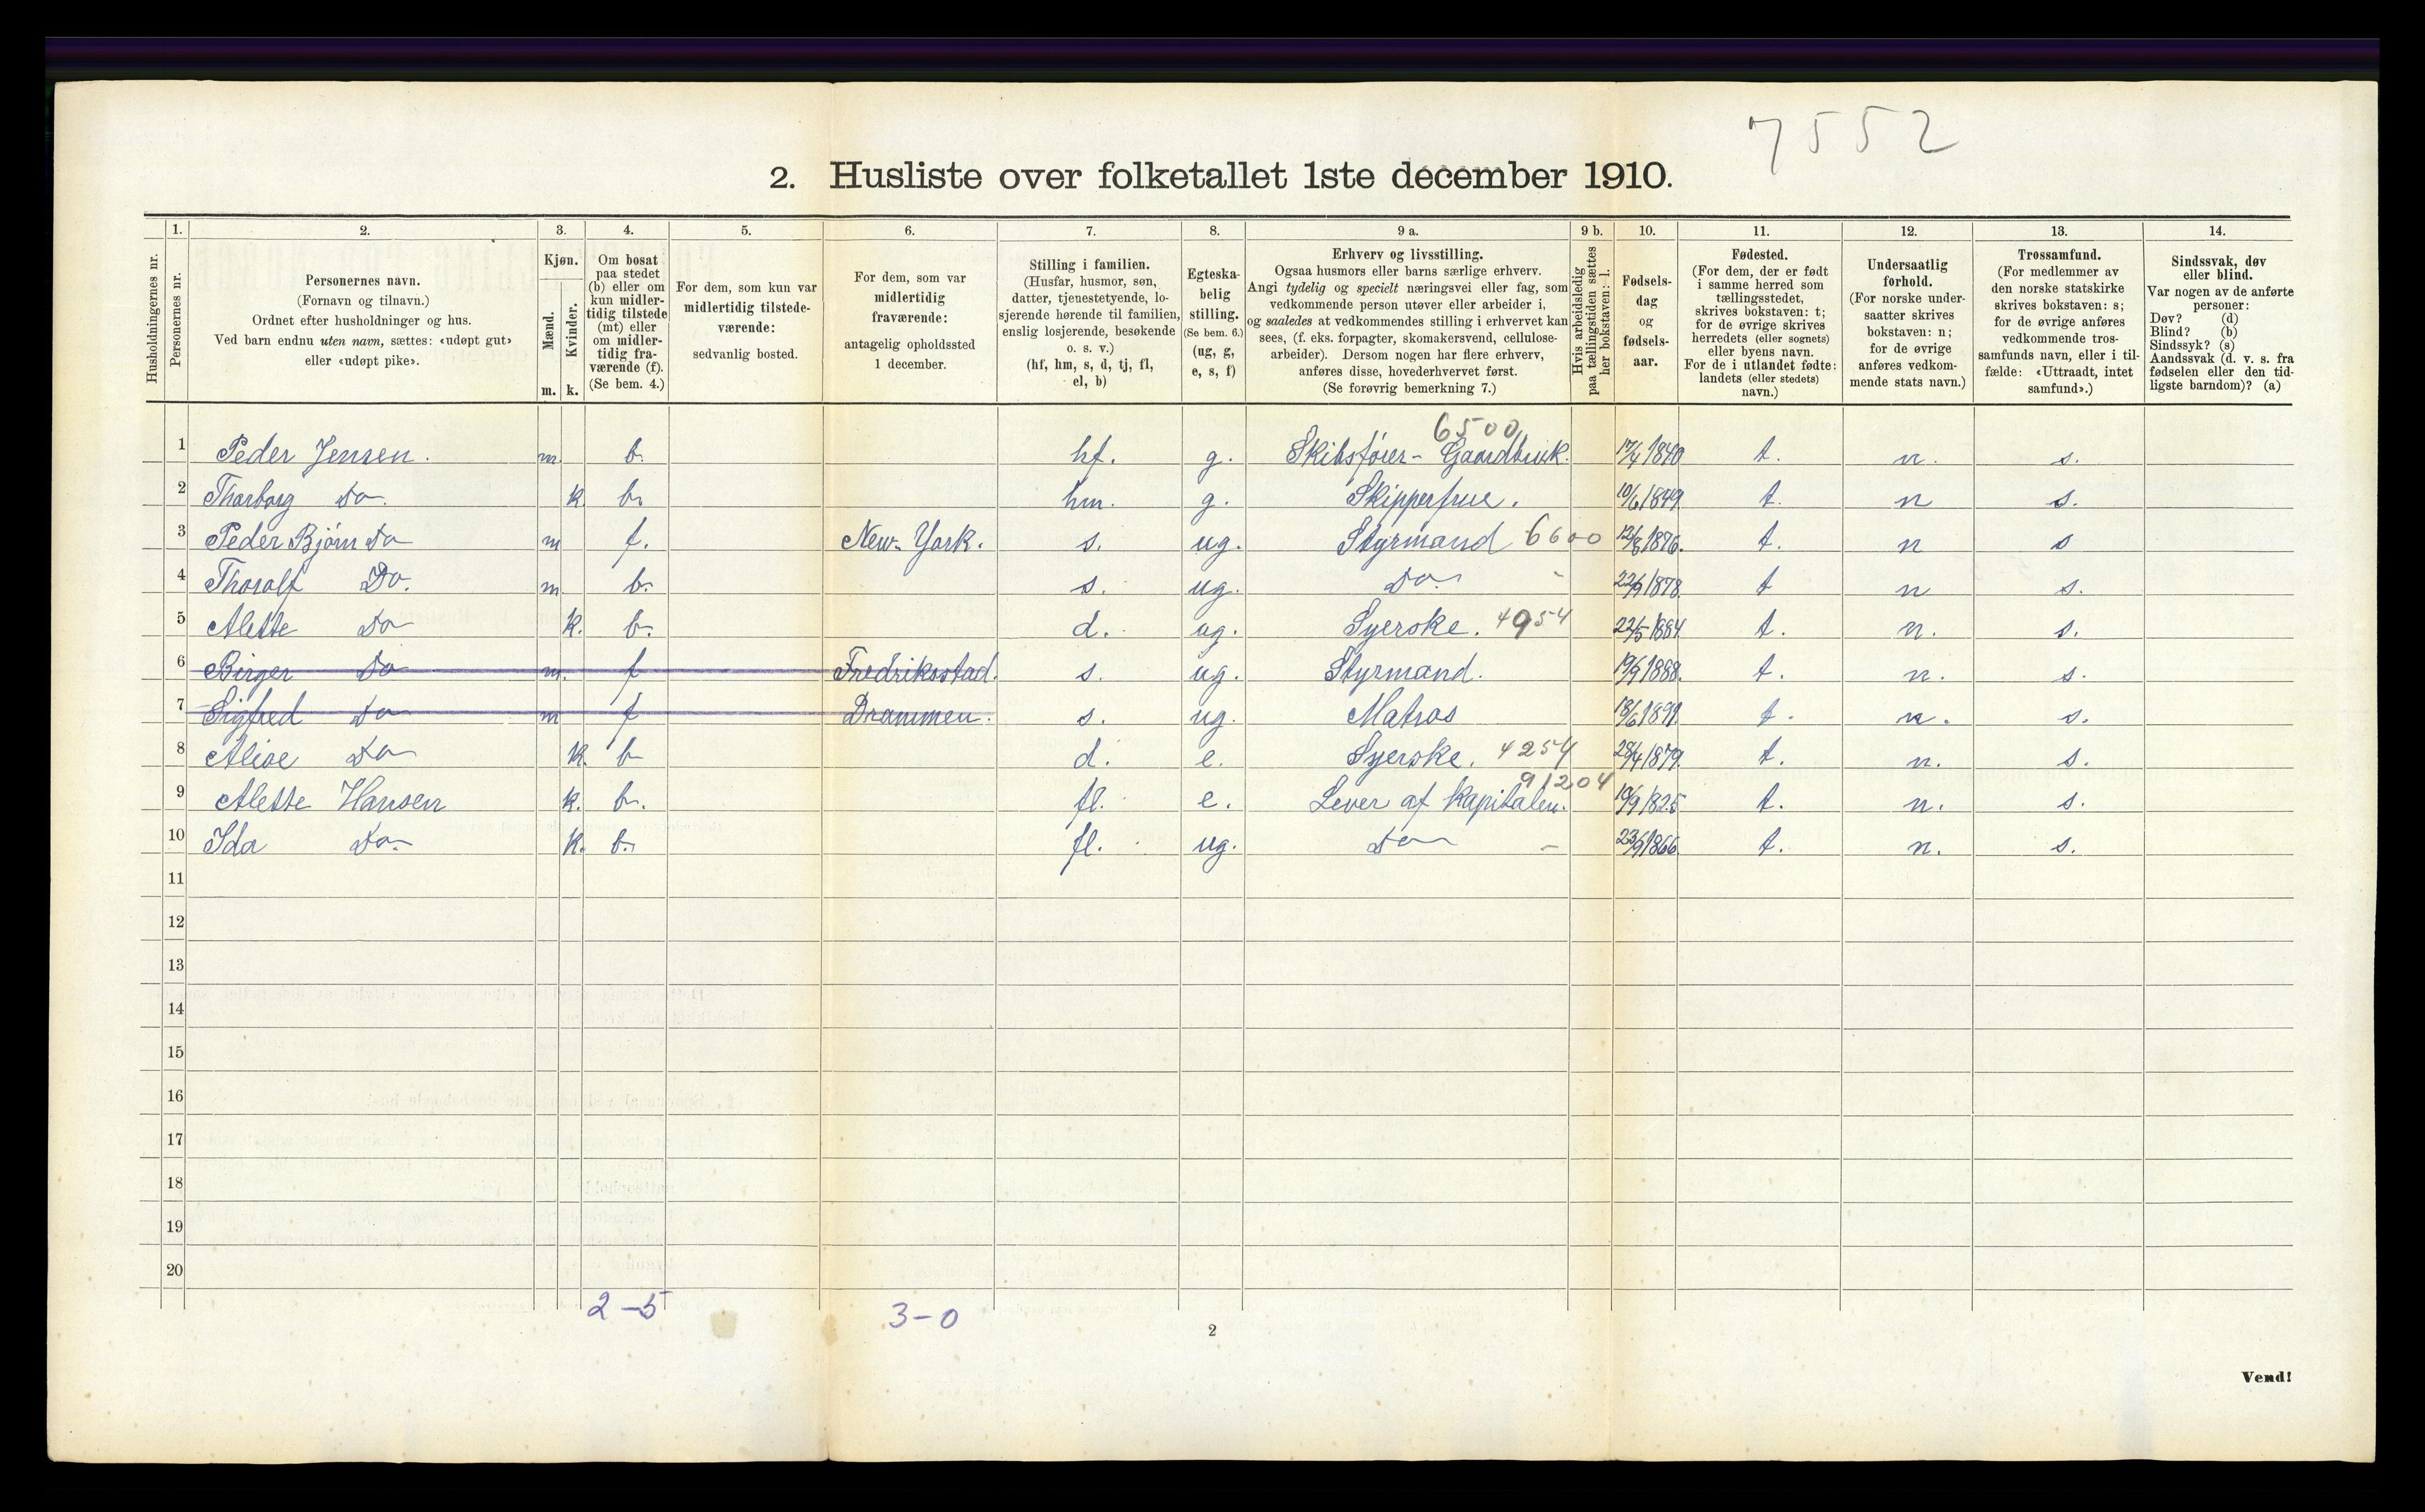 7552
2. Husliste over folketallet 1ste december 1910.
Husholdningernes nr.
1. Personernes nr.
2. Personernes navn. (Fornavn og tilnavn.) Ordnet efter husholdninger og hus. Ved barn endnu uten navn, sættes: «udøpt gut» eller «udøpt pike».
3. Kjøn. Mænd. m. Kvinder. k.
4. Om bosat paa stedet (b) eller om kun midlertidig tilstede (mt) eller om midlertidig fraværende (f). (Se bem. 4.)
5. For dem, som kun var midlertidig tilstedeværende: sedvanlig bosted.
6. For dem, som var midlertidig fraværende: antagelig opholdssted 1 december.
7. Stilling i familien. (Husfar, husmor, søn, datter, tjenestetyende, losjerende hørende til familien, enslig losjerende, besøkende o. s. v.) (hf, hm, s, d, tj, fl, el, b)
8. Egteskabelig stilling. (Se bem. 6.) (ug, g, e, s, f)
9 a. Erhverv og livsstilling. Ogsaa husmors eller barns særlige erhverv. Angi tydelig og specielt næringsvei eller fag, som vedkommende person utøver eller arbeider i, og saaledes at vedkommendes stilling i erhvervet kan sees, (f. eks. forpagter, skomakersvend, cellulosearbeider). Dersom nogen har flere erhverv, anføres disse, hovederhvervet først. (Se forøvrig bemerkning 7.)
9 b. Hvis arbeidsledig paa tællingstiden sættes her bokstaven: l.
10. Fødselsdag og fødselsaar.
11. Fødested. (For dem, der er født i samme herred som tællingsstedet, skrives bokstaven: t; for de øvrige skrives herredets (eller sognets) eller byens navn. For de i utlandet fødte: landets (eller stedets) navn.)
12. Undersaatlig forhold. (For norske undersaatter skrives bokstaven: n; for de øvrige anføres vedkommende stats navn.)
13. Trossamfund. (For medlemmer av den norske statskirke skrives bokstaven: s; for de øvrige anføres vedkommende trossamfunds navn, eller i tilfælde: «Uttraadt, intet samfund».)
14. Sindssvak, døv eller blind. Var nogen av de anførte personer: Døv? (d) Blind? (b) Sindssyk? (s) Aandssvak (d. v. s. fra fødselen eller den tidligste barndom)? (a)
6500
1 Peder Jensen. m b. hf. g. Skibsfører- Gaardbruk. 17/4 1840 t. n. s.
2 Thorborg Do. k b. hm. g. Skipperfrue. 10/6 1849. t. n s.
3 Peder Bjørn Do m f. New-York. s. ug. Styrmand 6600 12/8 1876. t. n s
4 Thoralf Do. m b. s. ug. Do. - 22/9 1878. t n s.
5 Alette Do k. b. d. ug. Syerske. 4954 22/5 1884. t. n. s.
6 Birger Do m. f Fredriksstad. s. ug. Styrmand. 1888. t. n. s.
7 Sigfred Do m f Drammen. s. ug. Matros 18/6 1891. t. n. s.
8 Do k. b d. e. Syerske. 4254 28/4 1879. t. n. s.
91204
9 Alette Hansen k. b. fl. e. Lever af kapitalen. 10/9 1825 t. n. s.
10 Ida Do. k. b. fl. ug. Do - 23/9 1866. t. n. s.
11
12
13
14
15
16
17
18
19
20
2-5 3-0
2
Vend!